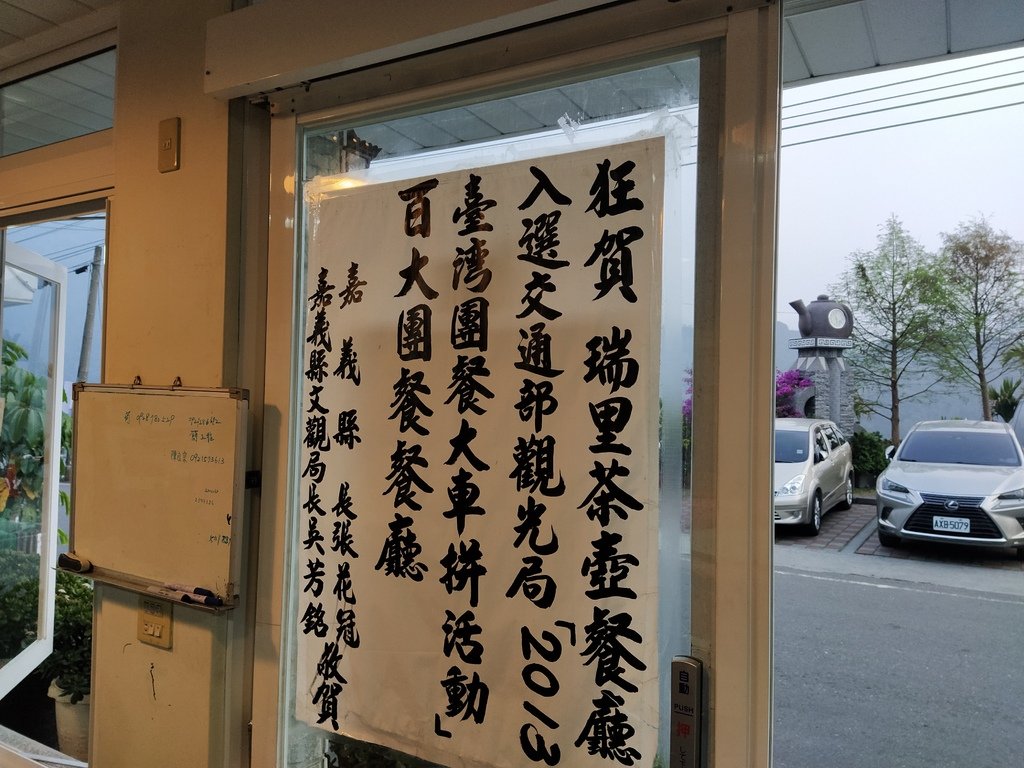 狂賀 瑞里茶壺餐廳
入選交通部觀光局「2013
臺灣團餐大車拼活動」
百大團餐餐廳
嘉義縣 長張花冠
嘉義縣文觀局長吳芳銘
敬賀
自動
PUSH
押
AXB-5079